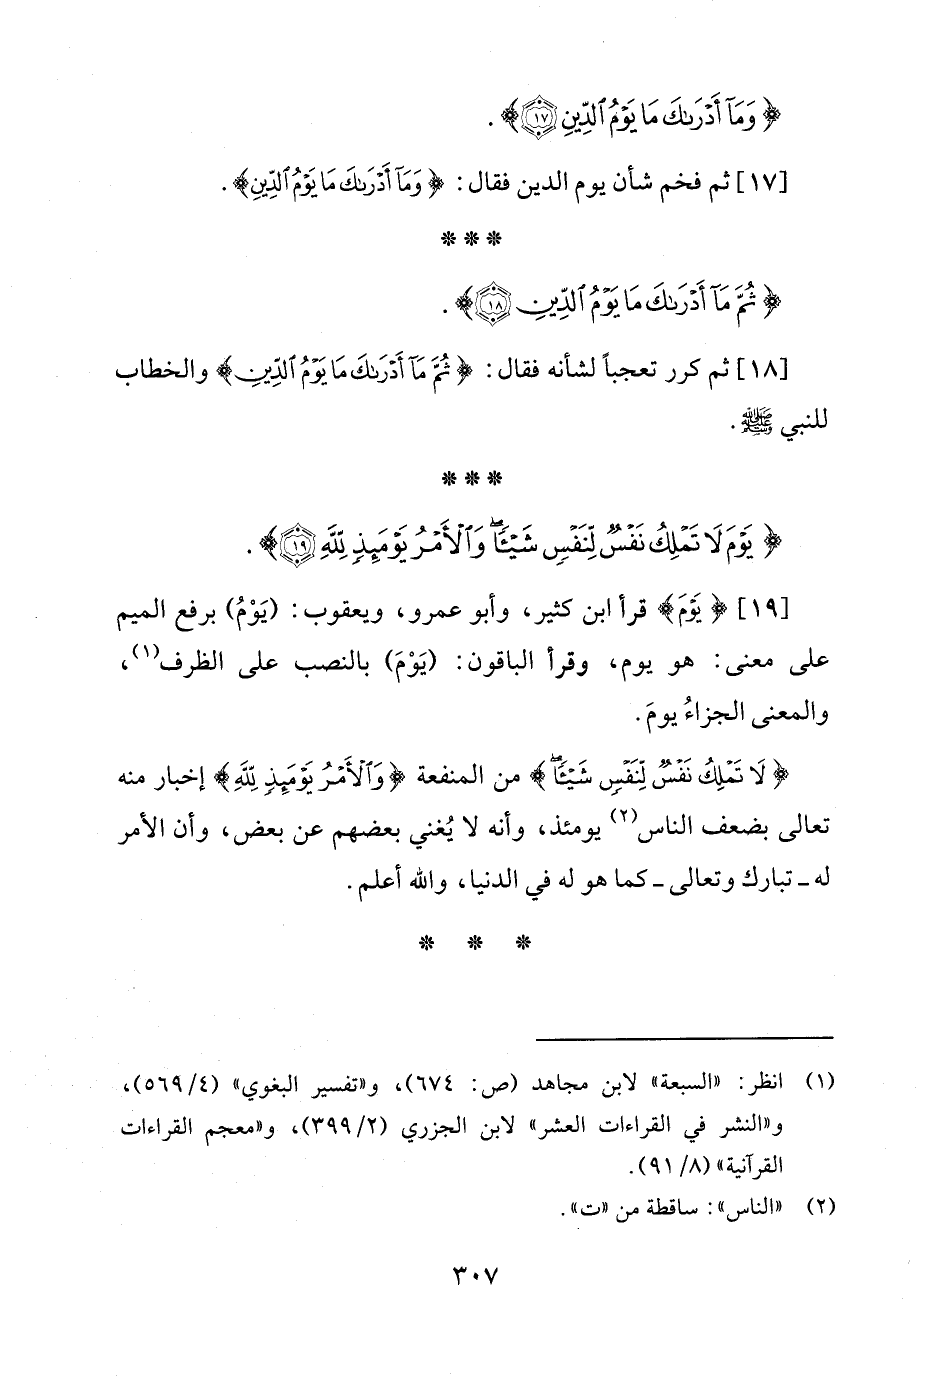 ﴿ وَمَآ أَدْرَىٰكَ مَا يَوْمُ ٱلدِّينِ ١٧ ﴾ .
[١٧] ثم فخم شأن يوم الدين فقال : ﴿ وَمَآ أَدْرَىٰكَ مَا يَوْمُ ٱلدِّينِ ﴾ .
* * *
﴿ ثُمَّ مَآ أَدْرَىٰكَ مَا يَوْمُ ٱلدِّينِ ١٨ ﴾ .
[١٨] ثم كرر تعجباً لشأنه فقال : ﴿ ثُمَّ مَآ أَدْرَىٰكَ مَا يَوْمُ ٱلدِّينِ ﴾ والخطاب
للنبي ﷺ .
* * *
﴿ يَوْمَ لَا تَمْلِكُ نَفْسٌ لِّنَفْسٍ شَيْـًٔا ۖ وَٱلْأَمْرُ يَوْمَئِذٍ لِّلَّهِ ١٩ ﴾ .
[١٩] ﴿ يَوْمَ ﴾ قرأ ابن كثير، وأبو عمرو، ويعقوب : (يَوْمُ) برفع الميم
على معنى : هو يوم، وقرأ الباقون : (يَوْمَ) بالنصب على الظرف(١)،
والمعنى الجزاءُ يومَ.
﴿ لَا تَمْلِكُ نَفْسٌ لِّنَفْسٍ شَيْـًٔا ۖ ﴾ من المنفعة ﴿ وَٱلْأَمْرُ يَوْمَئِذٍ لِّلَّهِ ﴾ إخبار منه
تعالى بضعف الناس(٢) يومئذ، وأنه لا يُغني بعضهم عن بعض، وأن الأمر
له ـ تبارك وتعالى ـ كما هو له في الدنيا، والله أعلم.
* * *
(١) انظر : «السبعة» لابن مجاهد (ص: ٦٧٤)، و«تفسير البغوي» (٤/ ٥٦٩)،
و«النشر في القراءات العشر» لابن الجزري (٢/ ٣٩٩)، و«معجم القراءات
القرآنية» (٨/ ٩١).
(٢) «الناس» : ساقطة من «ت» .
٣٠٧